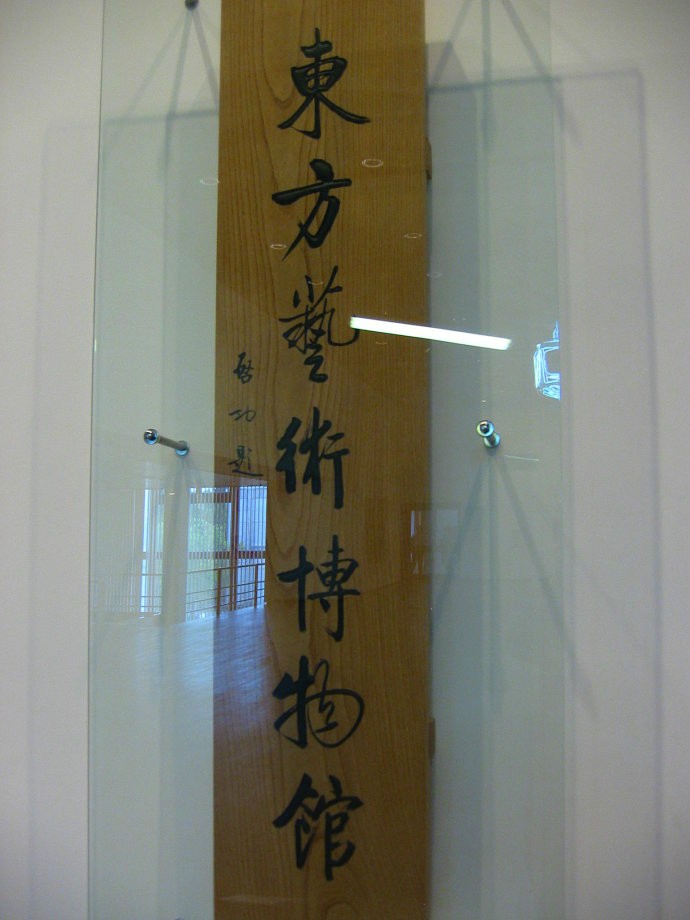 東方藝術博物館
啓功題